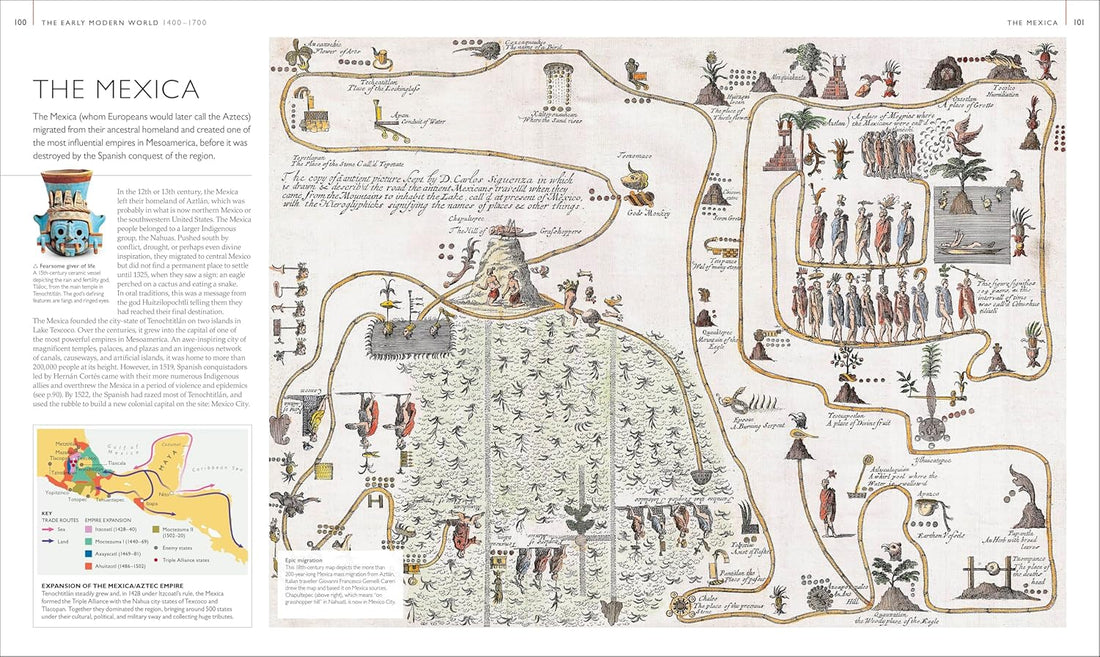 100
THE EARLY MODERN WORLD 1400–1700
THE MEXICA
101
THE MEXICA
The Mexica (whom Europeans would later call the Aztecs)
migrated from their ancestral homeland and created one of
the most influential empires in Mesoamerica, before it was
destroyed by the Spanish conquest of the region.
In the 12th or 13th century, the Mexica
left their homeland of Aztlán, which was
probably in what is now northern Mexico or
the southwestern United States. The Mexica
people belonged to a larger Indigenous
group, the Nahuas. Pushed south by
conflict, drought, or perhaps even divine
inspiration, they migrated to central Mexico
but did not find a permanent place to settle
until 1325, when they saw a sign: an eagle
perched on a cactus and eating a snake.
In oral traditions, this was a message from
the god Huitzilopochtli telling them they
had reached their final destination.
△ Fearsome giver of life
A 15th-century ceramic vessel
depicting the rain and fertility god,
Tlaloc, from the main temple in
Tenochtitlán. The god's defining
features are fangs and ringed eyes.
The Mexica founded the city-state of Tenochtitlán on two islands in
Lake Texcoco. Over the centuries, it grew into the capital of one of
the most powerful empires in Mesoamerica. An awe-inspiring city of
magnificent temples, palaces, and plazas and an ingenious network
of canals, causeways, and artificial islands, it was home to more than
200,000 people at its height. However, in 1519, Spanish conquistadors
led by Hernán Cortés came with their more numerous Indigenous
allies and overthrew the Mexica in a period of violence and epidemics
(see p.90). By 1522, the Spanish had razed most of Tenochtitlán, and
used the rubble to build a new colonial capital on the site: Mexico City.
Gulf of
Mexico
Cozumel
MAYA
Caribbean Sea
Tlaxcala
Yopitzinco
Tototepec
Tehuantepec
Nito
KEY
TRADE ROUTES
Sea
Land
EMPIRE EXPANSION
Itzcoatl (1428–40)
Moctezuma I (1440–69)
Axayácatl (1469–81)
Ahuitzotl (1486–1502)
Moctezuma II
(1502–20)
Enemy states
Triple Alliance states
EXPANSION OF THE MEXICA/AZTEC EMPIRE
Tenochtitlán steadily grew and, in 1428 under Itzcoatl's rule, the Mexica
formed the Triple Alliance with the Nahua city-states of Texcoco and
Tlacopan. Together they dominated the region, bringing around 500 states
under their cultural, political, and military sway and collecting huge tributes.
Flower of
The name of a Bird
Place of the Lookinglass
Conduit of Water
Where the Sand rises
The Place of the Stone Call'd Tepetate
The copy of ancient picture kept by D. Carlos Siguenza in which
is drawn & describ'd the road the antient Mexicans travell'd when they
came from the Mountains to inhabit the Lake, call'd at present of Mexico,
with the Hieroglyphicks signifying the names of places & other things.
Chapultepec
The Hill of Grashoppers
Gods Monkey
The place of
Aztlan
A place of Grotto
Humiliation
Mountain of the
Eagle
A Burning Serpent
A place of Divine fruit
A whirl pool where the
Water is swallowed
Apazco
Earthen Vessels
An Herb with broad
leaves
The place of
the deaths
head
An Ant
Hill
Chalco
The place of the precious
Stone
the Woody place of the Eagle
Epic migration
This 18th-century map depicts the more than
200-year-long Mexica mass migration from Aztlán.
Italian traveller Giovanni Francesco Gemelli Careri
drew the map and based it on Mexica sources.
Chapultepec (above right), which means "on
grasshopper hill" in Nahuatl, is now in Mexico City.